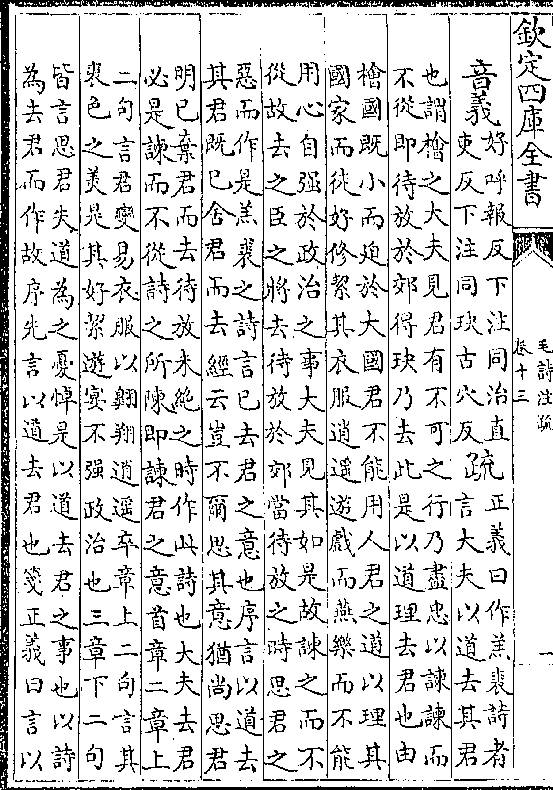 欽定四庫全書
毛詩注疏
卷十三
一
音義
好呼報反下注同治直
吏反下注同玦古穴反
疏
正義曰作羔裘詩者
言大夫以道去其君
也謂檜之大夫見君有不可之行乃盡忠以諫諫而
不從即待放於郊得玦乃去此是以道理去君也由
檜國既小而迫於大國君不能用人君之道以理其
國家而徒好修絜其衣服逍遥遊戲而燕樂而不能
用心自强於政治之事大夫見其如是故諫之而不
從故去之臣之將去待放於郊當待放之時思君之
惡而作是羔裘之詩言已去君之意也序言以道去
其君既已舍君而去經云豈不爾思其意猶尚思君
明已棄君而去待放未絶之時作此詩也大夫去君
必是諫而不從詩之所陳即諫君之意首章二章上
二句言君變易衣服以翺翔逍遥卒章上二句言其
裘色之美是其好絜遊宴不强政治也三章下二句
皆言思君失道為之憂悼是以道去君之事也以詩
為去君而作故序先言以道去君也箋正義曰言以